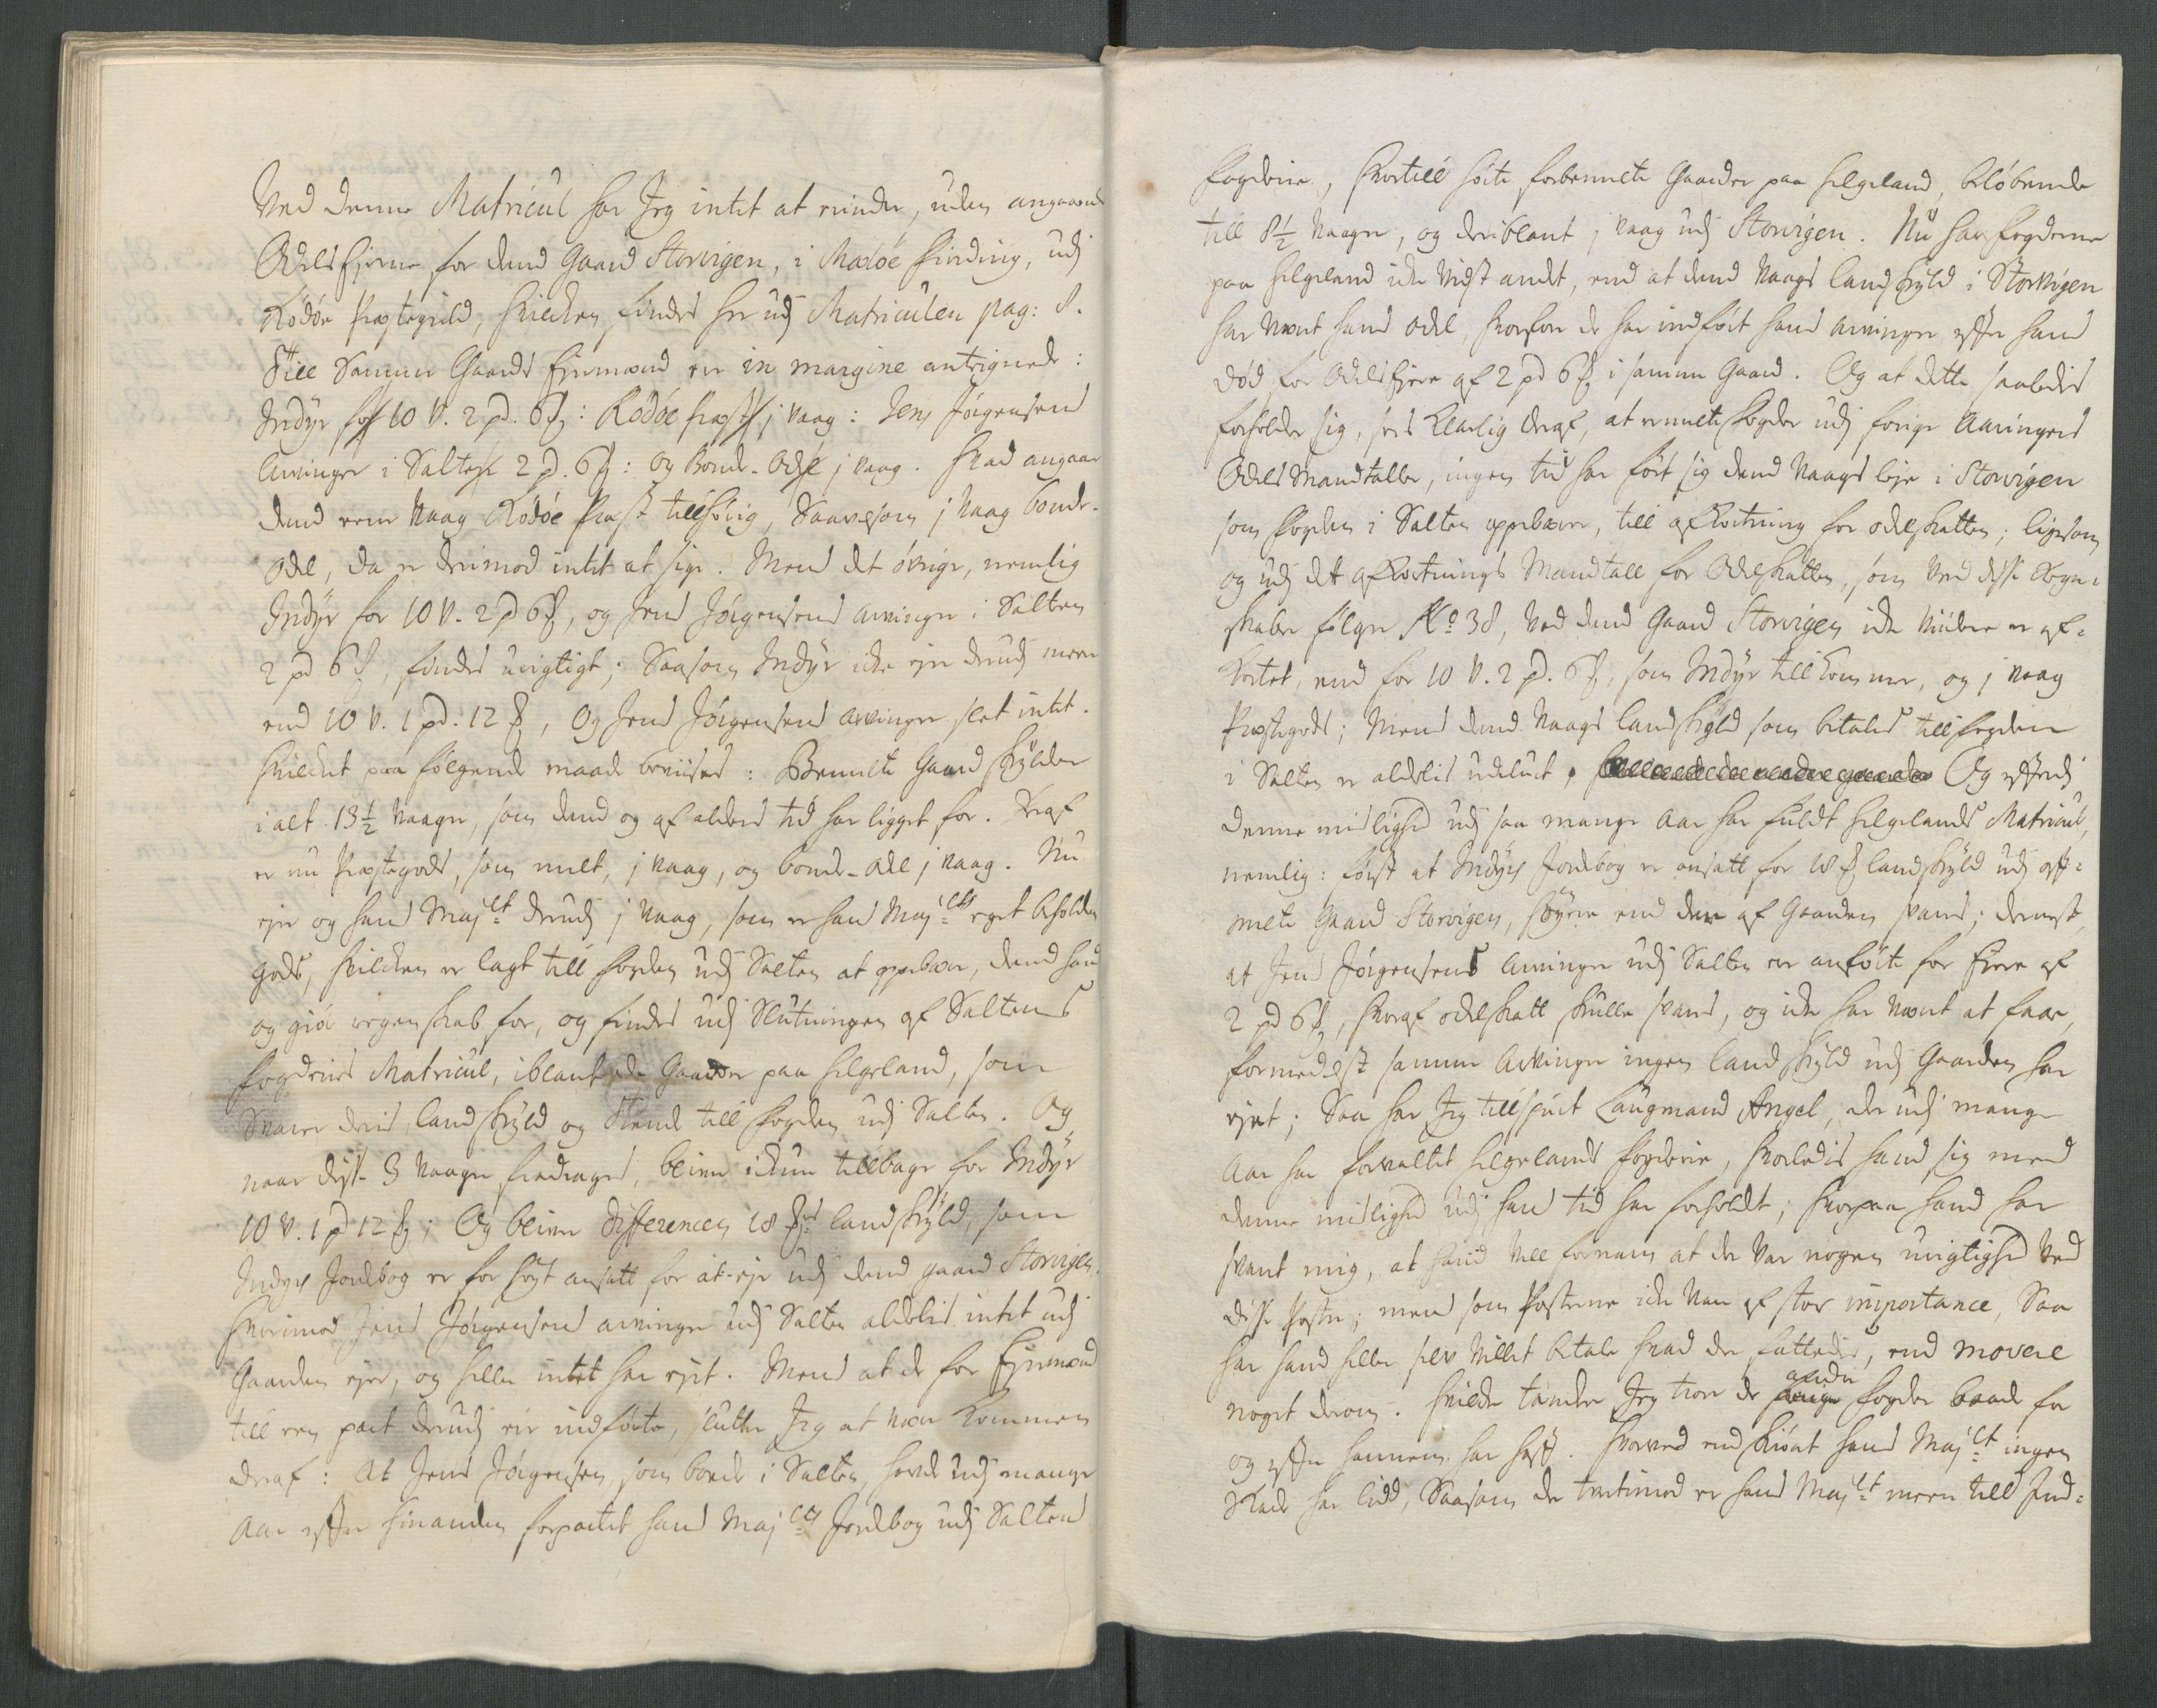 Ved denne Matricul har Jeg intet at erindre, uden angaaende
Odels Ejerne for dend Gaard Storvigen, i Meløe fierding, udj
Rødøe Præstegield, hvilcken findes her udj Matriculen pag: 8.
Till Samme Gaards Ejermænd er in margine antegnede:
Indyr for 10 V. 2 pd. 6 ℔: Rødøe præst j vaag: Jens Jørgensens
Arvinger i Salten 2 pd. 6 ℔: og Bonde-Odel j vaag. Hvad angaar
dend eene Vaag Rødøe Præst tillhørig, Saavelsom j Vaag bonde-
Odel, da er derimod intet at sige. Mend det øvrige, nemlig
Indyr for 10 V. 2 pd 6 ℔, og Jens Jørgensens arvinger i Salten
2 pd 6 ℔, findes urigtigt; Saasom Indyr icke ejer derudj meere
end 10 V. 1 pd. 12 ℔, Og Jens Jørgensens arvinger slet intet.
Hvilcket paa følgende maade bevises: Bemelte Gaard skylder
i alt 13½ Vaager, som dend og af alders tid har ligget for. Deraf
er nu Præstegods, som melt, j vaag, og bonde-odel j vaag. Nu
ejer og hans Maj:et derudj j Vaag, som er hans Maj:ets eget beholden
gods, hvilcken er lagt till fogden udj Salten at oppebære, dend hand
og giør regenskab for, og findes udj Slutningen af Saltens
fogderies Matricul, iblant de Gaarder paa Helgeland, som
Svarer deris landskyld og Rende till fogden udj Salten. Og
naar disse 3 Vaager fradrages, bliver ickun tillbage for Indyr
10 V. 1 pd 12 ℔; Og bliver differencen 18 ℔rs landskyld, som
Indyrs Jordbog er for høyt ansatt for at-eje udj dend gaard Storvigen.
Hvorimod Jens Jørgensens arvinger udj Salten aldelis intet udj
Gaarden ejer, og heller intet har ejet. Mend at de for Ejermænd
till een part derudj er indførte, slutter Jeg at være kommen
deraf: At Jens Jørgensen, som boede i Salten, havde udj mange
Aar efter hinanden forpagtet hans Maj:ets Jordbog udj Saltens
fogderie, hvortill hørte forbemelte Gaarder paa Helgeland, beløbende
till 8½ Vaager, og deriblant j vaag udj Storvigen. Nu har fogderne
paa Helgeland icke vidst andet, end at dend Vaags landskyld i Storvigen
har været hans odel, hvorfore de har indført hans arvinger efter hans
død for Odels Ejere af 2 pd 6 ℔ i samme Gaard. Og at dette saaledis
forholder sig, sees klarlig deraf, at ermelte fogder udj forige Aaringers
Odels Mandtaller, ingen tid har ført sig dend Vaags leje i Storvigen
som fogden i Salten oppebærer, till afkortning for odelskatten; ligesom
og udj det afkortnings Mandtall for Odelskatten, som ved disse Regn-
skaber følger No 38, ved dend Gaard Storvigen icke videre er af-
kortet, end for 10 V. 2 pd. 6 ℔, som Indyr tillkommer, og j vaag
Præstegods; Mend dend Vaags landskyld som betales till fogden
i Salten er aldelis udeluct. Og efterdj
denne mislighed udj saa mange Aar har fuldt Helgelands Matricul,
nemlig: først at Indyrs Jordbog er ansatt for 18 ℔ landskyld udj oft-
melte Gaard Storvigen, høyere end der af Gaarden svares; dernest,
at Jens Jørgensens arvinger udj Salten er anførte for Eiere af
2 pd 6 ℔, hvoraf odelskatt skulle svares, og icke har været at faae,
formedelst samme Arvinger ingen landskyld udj Gaarden har
ejet; Saa har Jeg tillspurt Laugmand Angel, der udj mange
Aar har forvaltet Helgelands fogderie, hvorledis hand sig med
denne mislighed udj hans tid har forholdt; hvorpaa hand har
svaret mig, at hand vel fornam at der var nogen urigtighed ved
disse Poster; mend som Posterne icke var af stor importance, Saa
har hand heller selv villet betale hvad der fattedes, end movere
noget derom. Hvilcke tancker Jeg troer de andre fogder baade før
og efter hannem har hafft. Hvorved end skiønt hans Maj:et ingen
Skade har lidt, Saasom der tvertimod er hans Maj:et meere till Ind-